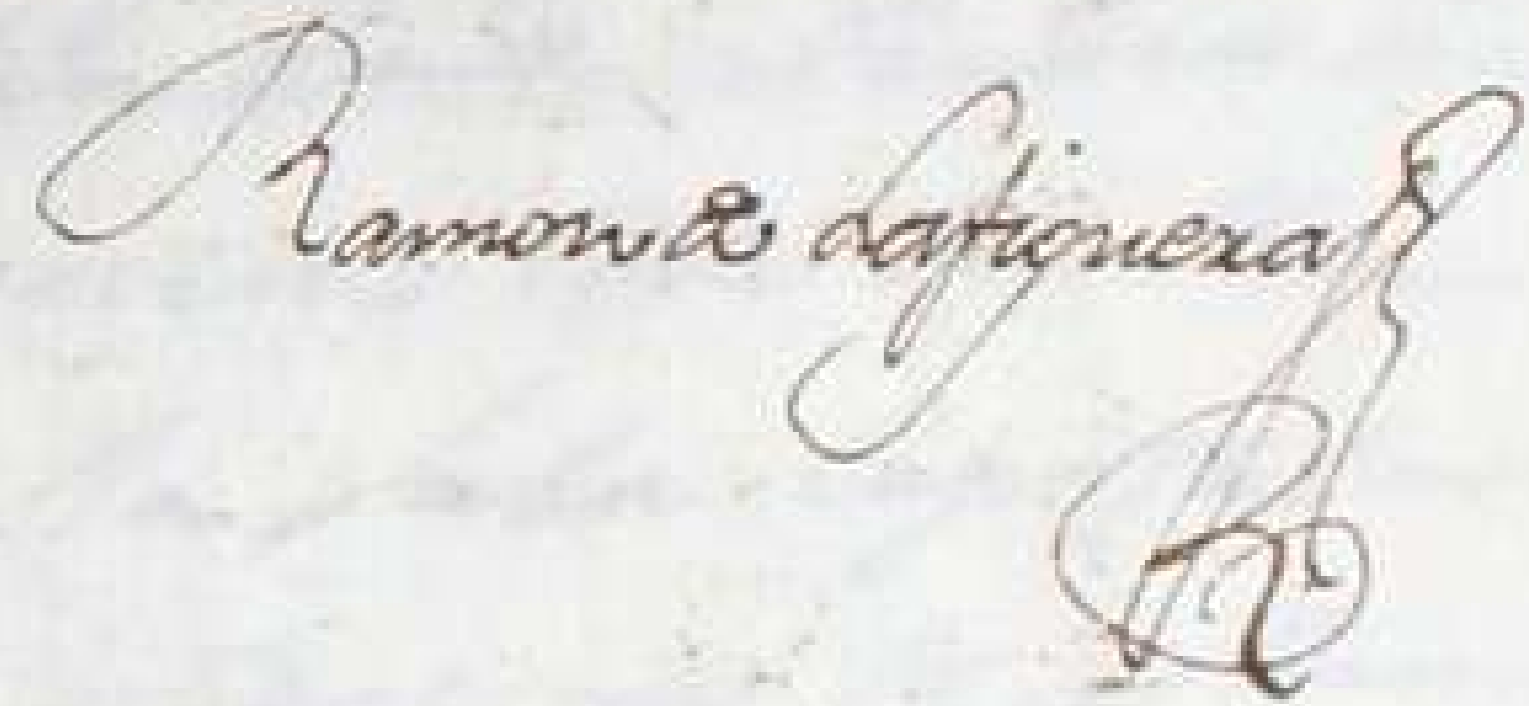 Ramon de Lafiguera